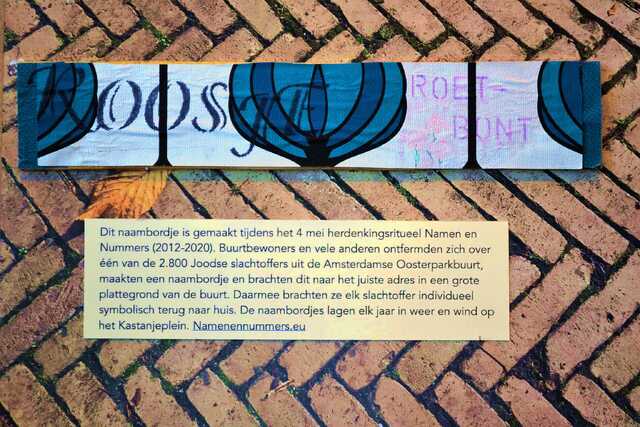 ROOSJE
ROET-
BONT
Dit naambordje is gemaakt tijdens het 4 mei herdenkingsritueel Namen en
Nummers (2012-2020). Buurtbewoners en vele anderen ontfermden zich over
één van de 2.800 Joodse slachtoffers uit de Amsterdamse Oosterparkbuurt,
maakten een naambordje en brachten dit naar het juiste adres in een grote
plattegrond van de buurt. Daarmee brachten ze elk slachtoffer individueel
symbolisch terug naar huis. De naambordjes lagen elk jaar in weer en wind op
het Kastanjeplein. Namenennummers.eu